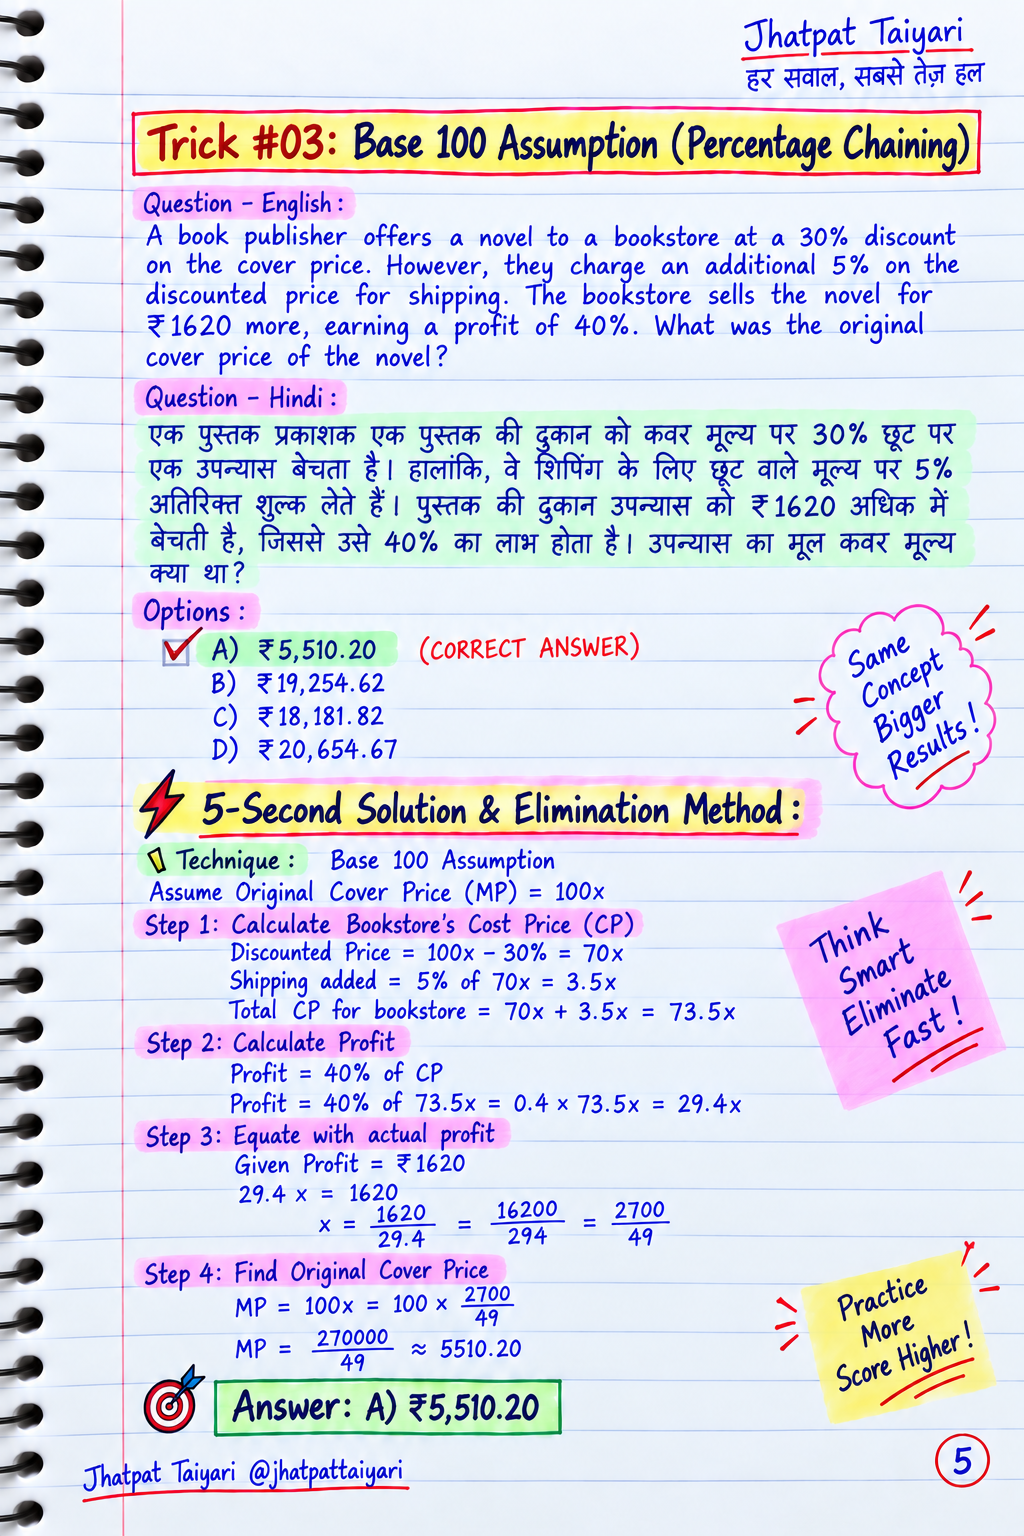 Jhatpat Taiyari
हर सवाल, सबसे तेज़ हल
Trick #03: Base 100 Assumption (Percentage Chaining)
Question – English :
A book publisher offers a novel to a bookstore at a 30% discount
on the cover price. However, they charge an additional 5% on the
discounted price for shipping. The bookstore sells the novel for
₹1620 more, earning a profit of 40%. What was the original
cover price of the novel?
Question – Hindi :
एक पुस्तक प्रकाशक एक पुस्तक की दुकान को कवर मूल्य पर 30% छूट पर
एक उपन्यास बेचता है। हालांकि, वे शिपिंग के लिए छूट वाले मूल्य पर 5%
अतिरिक्त शुल्क लेते हैं। पुस्तक की दुकान उपन्यास को ₹1620 अधिक में
बेचती है, जिससे उसे 40% का लाभ होता है। उपन्यास का मूल कवर मूल्य
क्या था?
Options :
A) ₹5,510.20 (CORRECT ANSWER)
B) ₹19,254.62
C) ₹18,181.82
D) ₹20,654.67
Same
Concept
Bigger
Results!
5-Second Solution & Elimination Method :
Technique : Base 100 Assumption
Assume Original Cover Price (MP) = 100x
Step 1: Calculate Bookstore's Cost Price (CP)
Discounted Price = 100x – 30% = 70x
Shipping added = 5% of 70x = 3.5x
Total CP for bookstore = 70x + 3.5x = 73.5x
Think
Smart
Eliminate
Fast!
Step 2: Calculate Profit
Profit = 40% of CP
Profit = 40% of 73.5x = 0.4 × 73.5x = 29.4x
Step 3: Equate with actual profit
Given Profit = ₹1620
29.4 x = 1620
x = 1620/29.4 = 16200/294 = 2700/49
Step 4: Find Original Cover Price
MP = 100x = 100 × 2700/49
MP = 270000/49 ≈ 5510.20
Practice
More
Score Higher!
Answer: A) ₹5,510.20
Jhatpat Taiyari @jhatpattaiyari
5